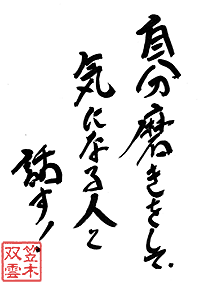 自分磨きをして、
気になる人と
話す！
笠木
双雲